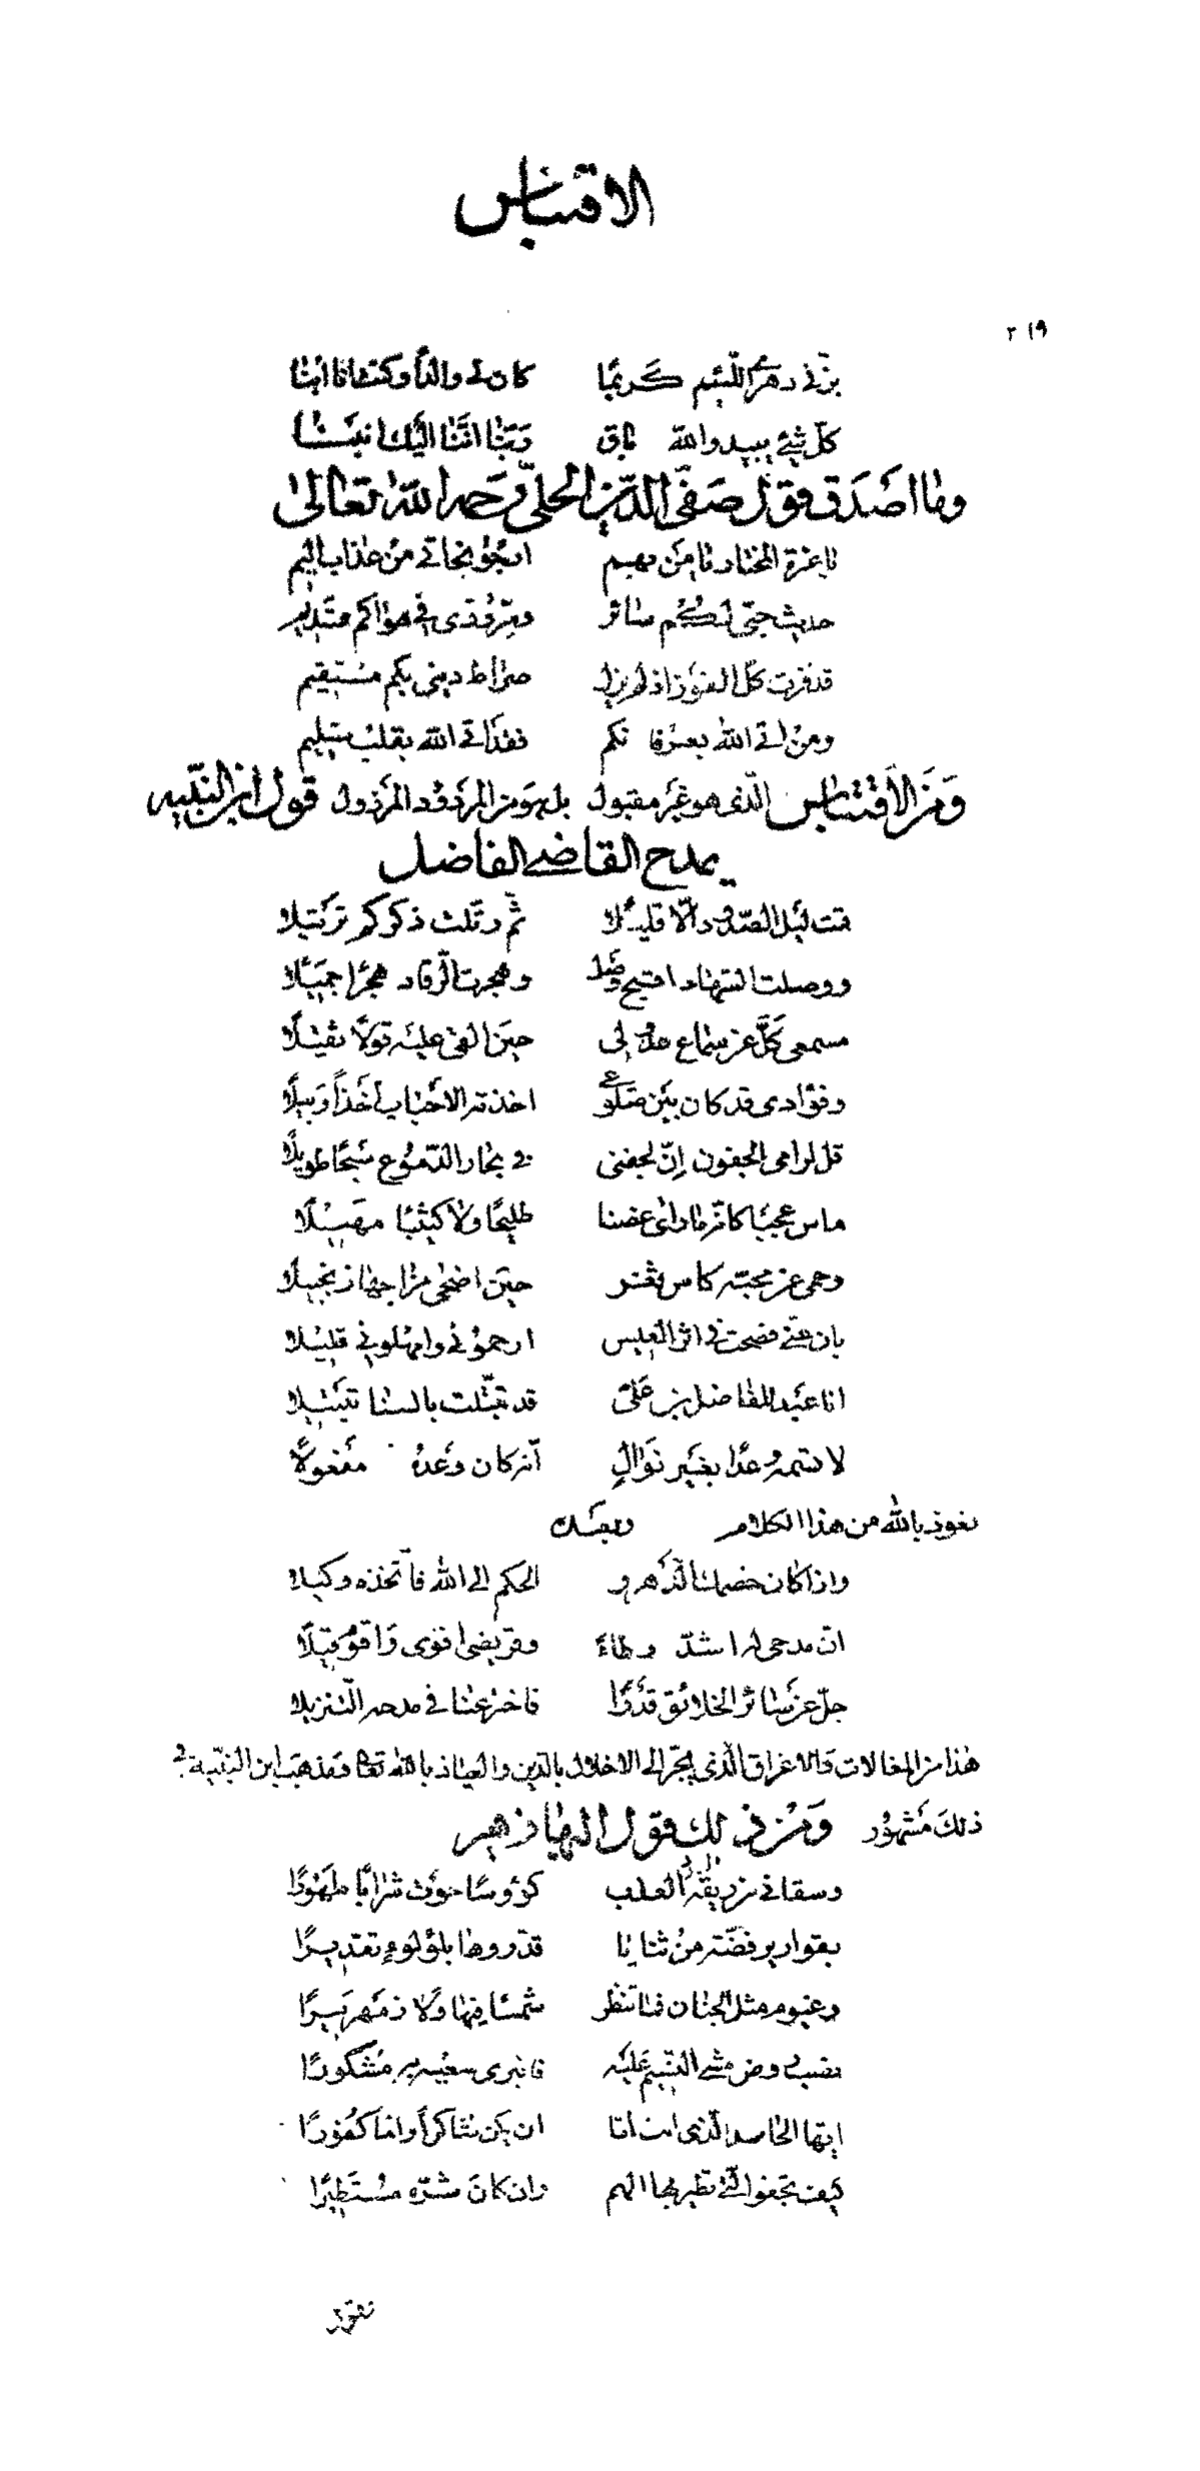 الاقتباس
٢١٩
بزّني دهري اللئيم كريمًا كان لي والدًا وكنت انا ابنا
كلّ شيء يبيد والله باق ربّنا انّنا اليك انبنا
وما اصدق قول صفيّ الدّين الحليّ رحمه الله تعالى
يا عترة المختار يا من بهم ارجو نجاتي من عذاب اليم
حديث حبّي لكم سائر وسرّ ودّي في هواكم مقيم
قد فزت كلّ الفوز اذ لم يزل صراط ديني بكم مستقيم
ومن اتى الله بعرفانكم فقد اتى الله بقلب سليم
ومن الاقتباس الّذي هو غير مقبول بل هو من المردود المرذول قول ابن النّبيه
يمدح القاضي الفاضل
قمت ليل الصّدود الّا قليلا ثم رتّلت ذكركم ترتيلا
ووصلت السّهاد اقبح وصل وهجرت الرّقاد هجرًا جميلًا
مسمعي كلّ عن سماع عذولي حين القي عليه قولًا ثقيلًا
وفؤادي قد كان بين ضلوعي اخذته الاحباب اخذًا وبيلًا
قل لرامي الجفون إنّ لجفني في بحار الدّموع سبحًا طويلًا
ماس عجبًا كانّه ما رأى غصنا طليحًا ولا كثيبًا مهيلًا
وحمى عن محبّه كاس ثغر حين اضحى مزاجها زنجبيلا
بان عنّي فصحت في اثر العيس ارحموني وامهلوني قليلا
انا عبد للفاضل بن عليّ قد تبتّلت بالسنا تبتيلا
لا تسمه وعدًا بغير نوالٍ انّه كان وعده مفعولًا
نعوذ بالله من هذا الكلام وبعده
واذا كان خصمنا الدّهر و الحكم الى الله فاتّخذه وكيلا
انّ مدحي له اشدّ وطاءً وقريضي اقوى واقوم قيلًا
جلّ عن سائر الخلائق قدرًا فاخترعنا في مدحه التّنزيلا
هذا من المغالات والاغراق الّذي يجرّ الى الاخلال بالدّين والعياذ بالله تعالى ومذهب ابن النّبيه في
ذلك مشهور ومن ذلك قول البها زهير
وسقاني من ريقه البارد العذب كؤوسًا حوت شرابًا طهورًا
بقوارير فضّة من ثنايا قدّروها بلؤلوءٍ تقديرًا
وغيوم مثل الجنان فما تنظر شمسًا فيها ولا زمهريرًا
مشى النسيم عليه فانبرى سعيه به مشكورًا
ايّها الحاسد الّذي انت امّا ان يكن شاكرًا واما كفورًا
كيف تجفو الّتي نظير بها الهم وان كان شرّه مستطيرًا